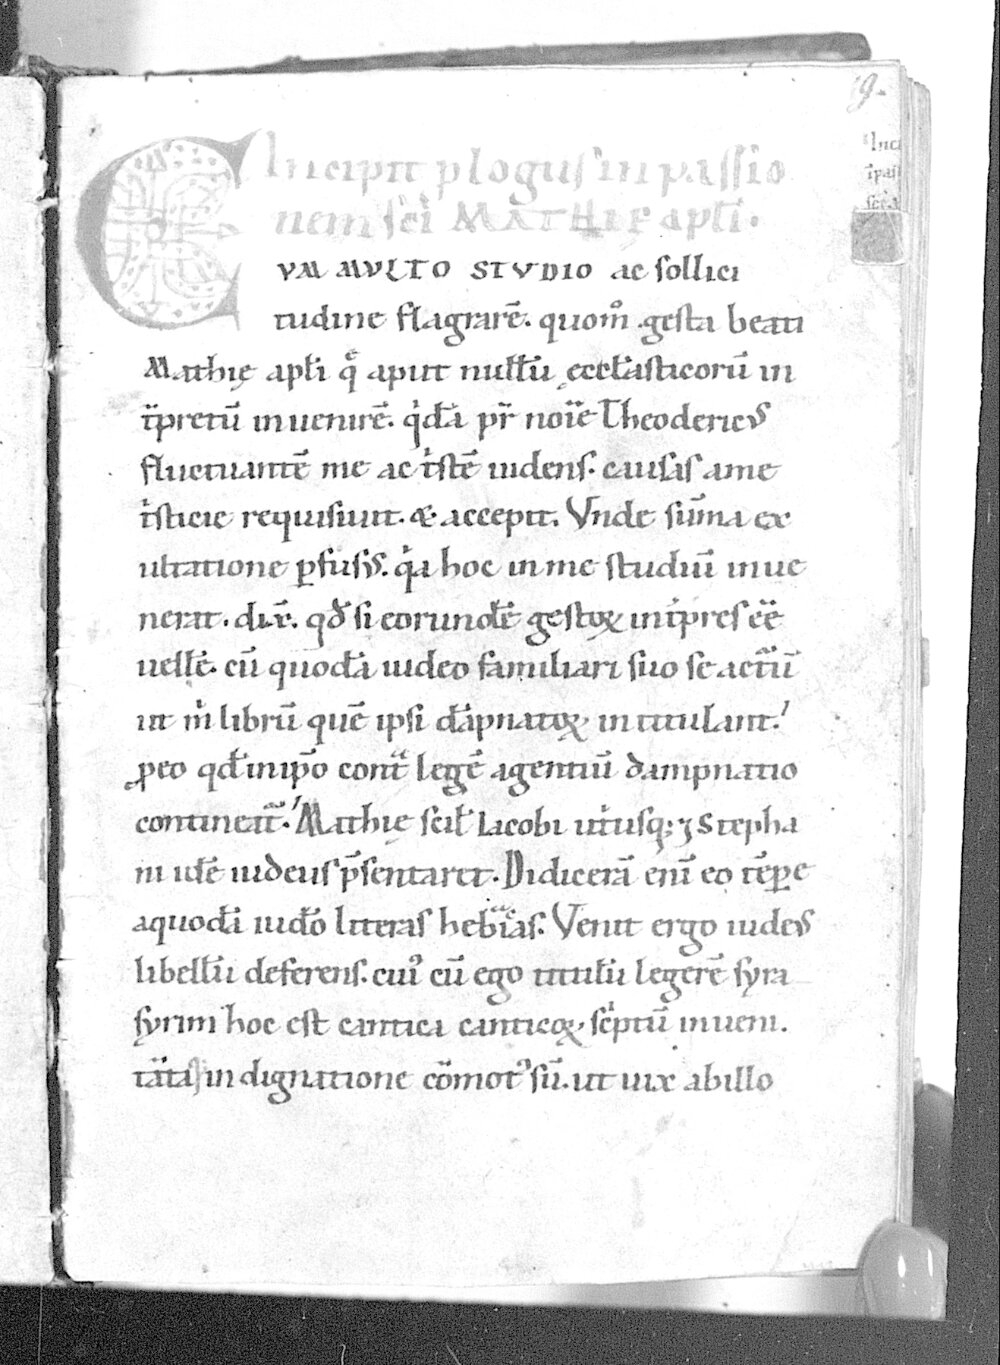 9.
Incipit plogus in passio
nem sci MATHIE apli.
CVM MVLTO STVDIO ac sollici
tudine flagrarē. quom̊ gesta beati
Mathię apli q̊ aput null̄u ęccl̄asticorū in
t̄pretū inuenirē. q̇dā pr̄ noīe Theodericus
fluctuantē me ac tͥstē uidens. causas a me
tͥsticie requisiuit. & accepit. Vnde sūma ex
ultatione ꝑfusus. qͥa hoc in me studiū inue
nerat. dix̄. qđ si eorundē gestoꝝ int̄pres eē
uellē. cū quodā iudeo familiari suo se actūͬ
ut mͥ librū quē ipsi dāpnatoꝝ intitulant.
ꝓeo qđ in ip̄o contͣ legē agentiū dampnatio
contineatͬ. Mathię scil̄ Iacobi utͥusq; ⁊ Stepha
ni idē iudeus p̄sentaret. Didicerā enī eo tēꝑe
a quodā iudeo literas hebͣicas. Venit ergo iudeus
libellū deferens. cui᾿ cū ego titulū legerē syra
syrim hoc est cantica canticoꝝ. scͥptū inueni.
tāta indignatione cōmot᾿ sū. ut uix ab illo
Inci
ipass
sci